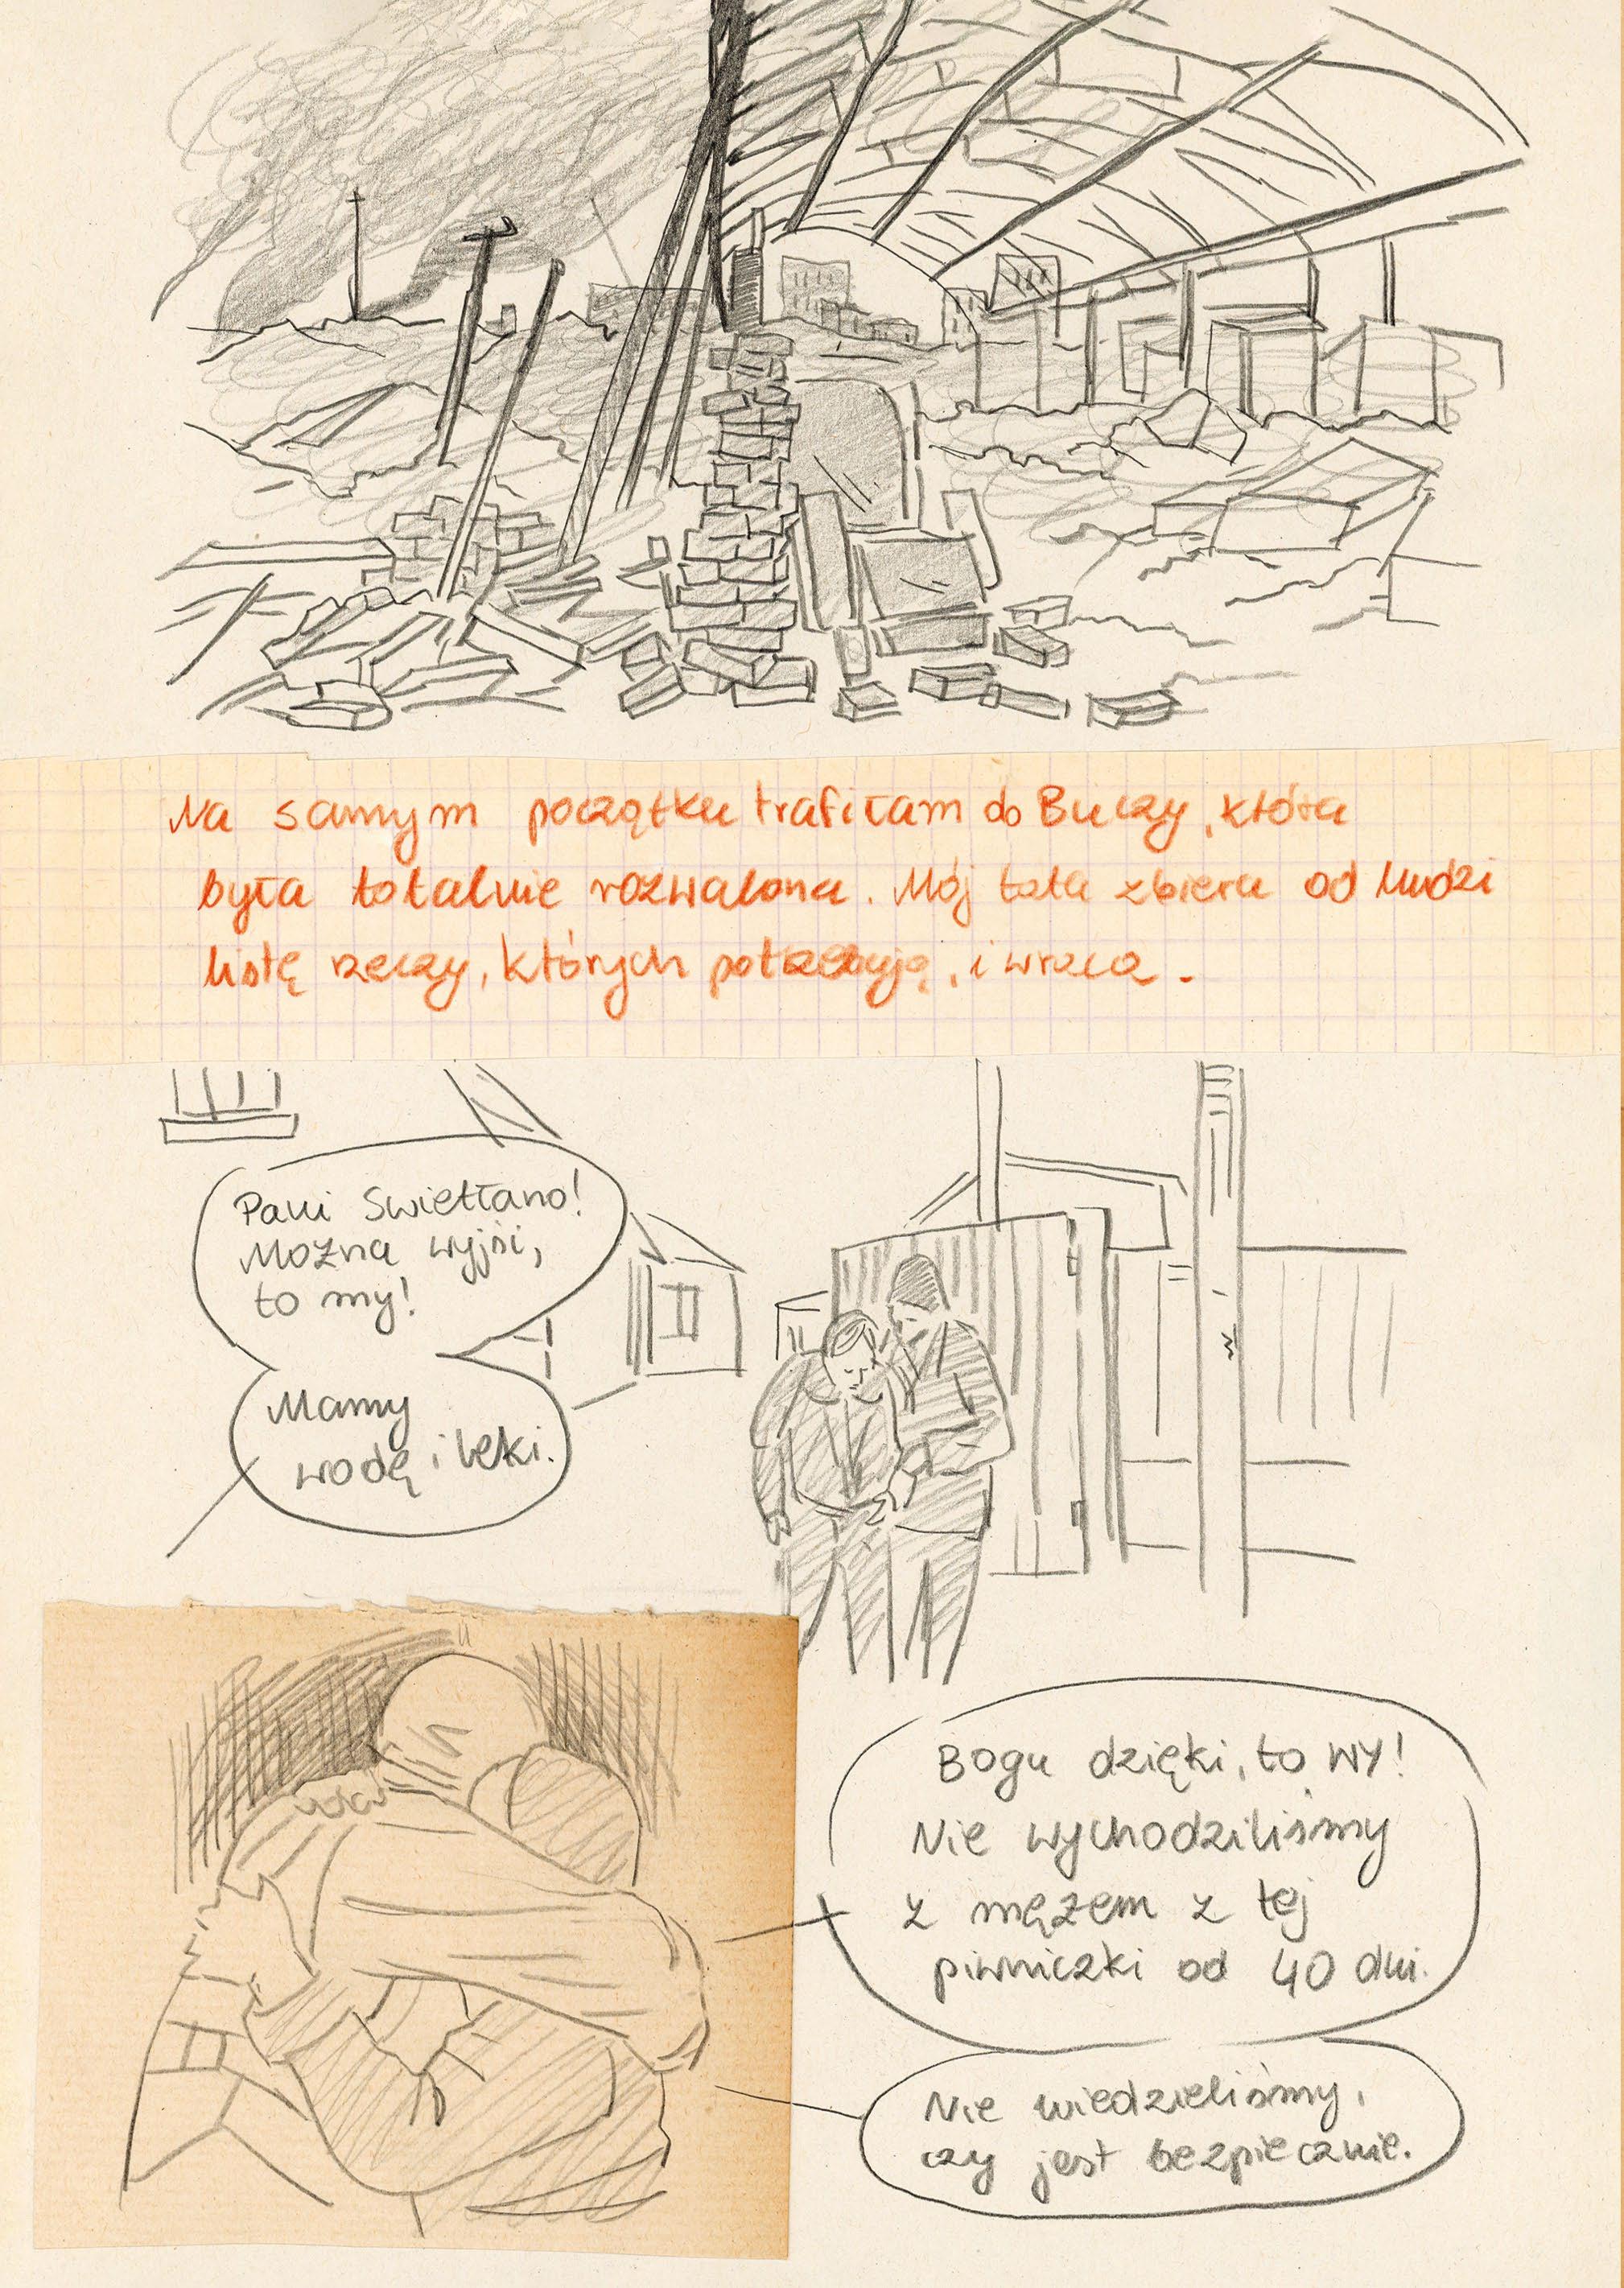 Na samym początku trafiłam do Buczy, która
była totalnie rozwalona. Mój tata zbiera od ludzi
listę rzeczy, których potrzebują, i wraca.
Pani Swietłano!
Można wyjść,
to my!
Mamy
wodę i leki.
Bogu dzięki, to wy!
Nie wychodziliśmy
z mężem z tej
piwniczki od 40 dni.
Nie wiedzieliśmy,
czy jest bezpiecznie.